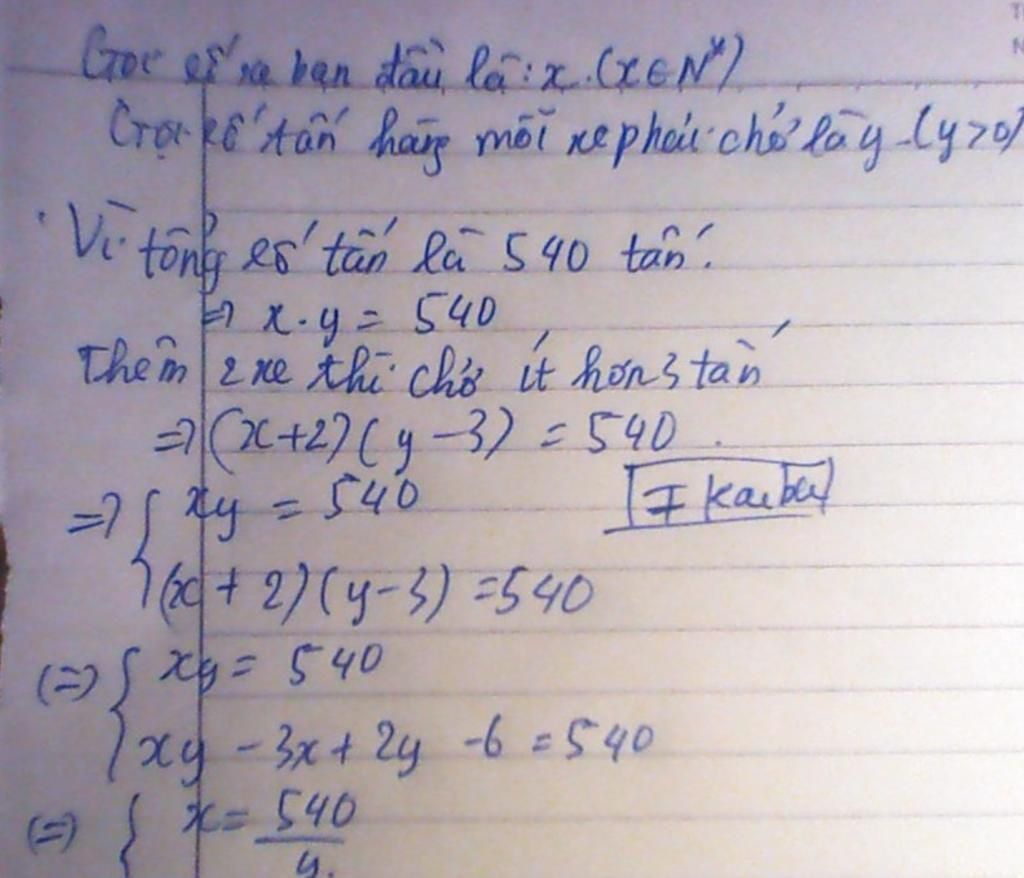 Gọi số xe ban đầu là: x. (x ∈ N*)
Gọi số tấn hàng mỗi xe phải chở là y. (y > 0)
Vì tổng số tấn là 540 tấn.
=> x . y = 540
Thêm 2 xe thì chở ít hơn 3 tấn
=> (x + 2) ( y - 3) = 540 .
=> { xy = 540
(x + 2) (y - 3) = 540
(=> { xy = 540
xy - 3x + 2y - 6 = 540
(=> { x = 540
y.